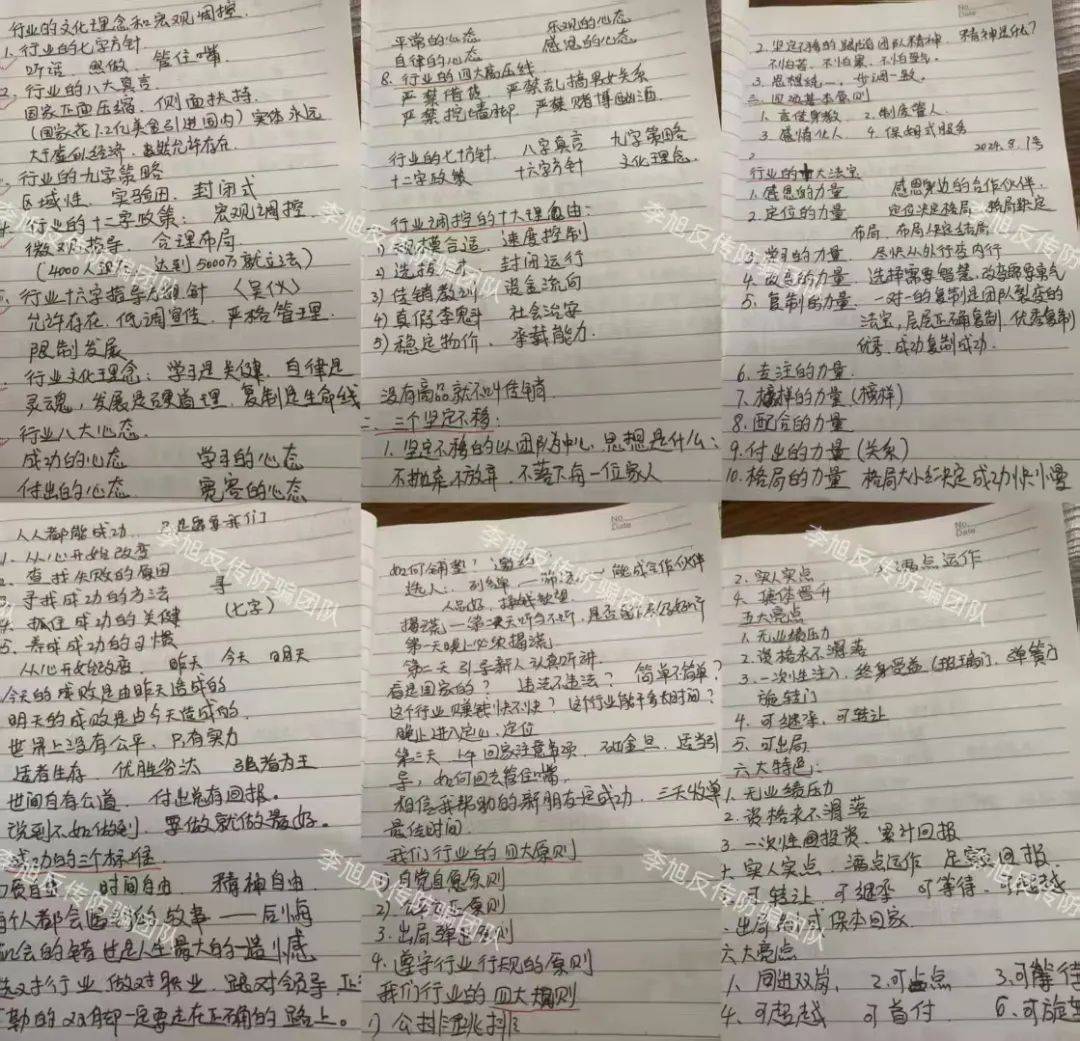 行业的文化理念和宏观调控.
1. 行业的七字方针
听话 照做 管住嘴
2. 行业的八大真言
国家正面压缩. 侧面扶持.
(国家花1.2亿美金引进国内) 实体永远
大于虚拟经济. 允许存在.
行业的九字策略
区域性. 实验田. 封闭式
4. 行业的十二字政策: 宏观调控.
微观指导. 合理布局.
(4000人退后, 达到5000万就立法)
行业十六字指导方针 〈吴仪〉
允许存在. 低调宣传. 严格管理.
限制发展
行业文化理念: 学习是关键. 自律是
灵魂, 发展是硬道理. 复制是生命线
行业八大心态.
成功的心态 学习的心态
付出的心态 宽容的心态
平常的心态 乐观的心态
自律的心态 感恩的心态
8. 行业的四大高压线
严禁借贷. 严禁乱搞男女关系
严禁挖墙脚. 严禁赌博酗酒.
行业的七字方针. 八字真言 九字策略
十二字政策 十六字方针 文化理念.
行业调控的十大理由:
1) 规模合适. 速度控制
2) 选拔人才 封闭运行
3) 传销教训 资金流向
4) 真假李魁 社会治安
5) 稳定物价. 承载能力.
没有商品就不叫传销.
二. 三个坚定不移:
1. 坚定不移的以团队为中心. 思想是什么:
不抛弃不放弃. 不落下每一位家人
No.
Date
2. 坚定不移的 团队精神. 精神是什么?
不怕苦. 不怕累. 不怕受气.
3. 思想统一. 步调一致.
三. 四项基本原则
1. 言传身教 2. 制度管人.
3. 感情化人 4. 保姆式服务
2024.8.1号
行业的十大法宝
1. 感恩的力量 感恩身边的合作伙伴.
2. 定位的力量 定位决定格局. 格局决定
布局. 布局决定结局.
3. 学习的力量. 尽快从外行变内行
4. 改变的力量. 选择需要智慧. 改变需要勇气
5. 复制的力量. 一对一的复制是团队裂变的
法宝, 层层正确复制. 优秀复制
优秀. 成功复制成功.
6. 专注的力量.
7. 榜样的力量 (榜样)
8. 配合的力量
9. 付出的力量 (关系)
10. 格局的力量 格局大小决定成功快慢
人人都能成功. 只是需要我们
1. 从心开始改变
2. 查找失败的原因
3. 寻找成功的方法 寻
4. 抓住成功的关健 (七字)
5. 养成成功的习惯
从心开始改变. 昨天 今天 明天
今天的成败是由昨天造成的
明天的成败是由今天造成的.
世界上没有公平. 只有实力
适者生存. 优胜劣汰 强者为王
世间自有公道. 付出总有回报。
说到不如做到. 要做就做最好。
成功的三个标准.
自由 时间自由. 精神自由.
每个人都会 的故事——后悔
机会的错过是人生最大的一 遗憾
选对行业 做对职业. 跟对领导. 正
勤的双脚一定要走在正确的路上。
No.
Date
如何铺垫? 邀约
选人: 列名单——筛选—— 能成合作伙伴
人品好. 挣钱欲望
揭谎——第一天
第一天晚上必须揭谎.
第二天 引导新人认真听讲.
看是国家的? 违法不违法? 简单不简单?
这个行业赚钱快不快? 这个行业能干多长时间?
晚上进入定心. 定位
第三天 上午回家注意事项. 适当引
导, 如何回去管住嘴.
相信我帮助的新朋友一定成功. 三天收单
最佳时间.
我们行业的四大原则
1) 自觉自愿原则
2) 原则
3. 出局 原则
4. 遵守行业行规的原则
我们行业的四大规则
1) 公排 跳排
No.
Date
满点运作
2. 实人实点
4. 集体晋升
五大亮点
1. 无业绩压力
2. 资格永不滑落
3. 一次性注入. 终身受益 弹簧门
旋转门
4. 可继承, 可转让
5. 可出局
六大特色:
1. 无业绩压力
2. 资格永不滑落
3. 一次性投资. 累计回报
实人实点. 满点运作 足额回报.
可转让. 可继承 可等待. 可超越
出局 保本回家.
六大亮点
1. 同进双岗. 2. 可占点 3. 可等待
4. 可超越 可首付. 6. 可旋
李旭反传防骗团队
李旭反传防骗团队
李旭反传防骗团队
李旭反传防骗团队
李旭反传防骗团队
李旭反传防骗团队